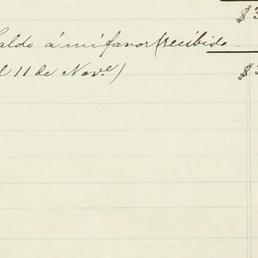 $3
aldo á mi favor (recibido
l 11 de Nov.e)
$3